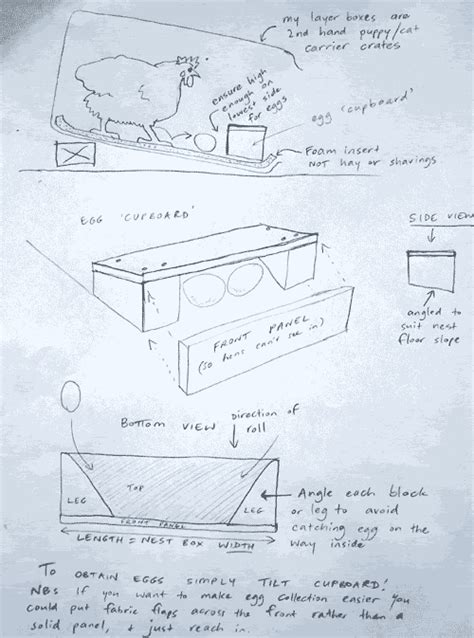 my layer boxes are
2nd hand puppy/cat
carrier crates
ensure high
enough on
lowest side
for eggs
egg 'cupboard'
Foam insert
NOT hay or shavings
EGG 'CUPBOARD'
SIDE VIEW
FRONT PANEL
(so hens can't see in)
angled to
suit nest
floor slope
BOTTOM VIEW
Direction of
roll
LEG
TOP
LEG
FRONT PANEL
LENGTH = NEST BOX WIDTH
Angle each block
or leg to avoid
catching egg on the
way inside
TO OBTAIN EGGS SIMPLY TILT CUPBOARD!
NB: If you want to make egg collection easier you
could put fabric flaps across the front rather than a
solid panel, + just reach in.